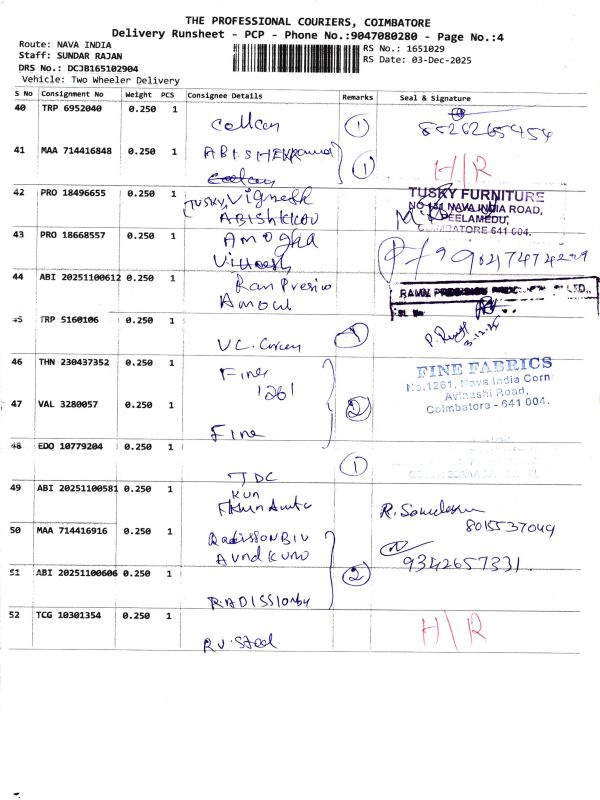 THE PROFESSIONAL COURIERS, COIMBATORE
Delivery Runsheet - PCP - Phone No.:9047080280 - Page No.:4
Route: NAVA INDIA
RS No.: 1651029
Staff: SUNDAR RAJAN
RS Date: 03-Dec-2025
DRS No.: DCJB165102904
Vehicle: Two Wheeler Delivery
S No Consignment No Weight PCS Consignee Details Remarks Seal & Signature
40 TRP 6952040 0.250 1
1
41 MAA 714416848 0.250 1 ABISHEK
1
H/R
42 PRO 18496655 0.250 1 TUSKY Vignesh
ABISHKKOU
TUSKY FURNITURE
NAVA INDIA ROAD,
PEELAMEDU,
COIMBATORE 641 004.
43 PRO 18668557 0.250 1 Amogha
44 ABI 20251100612 0.250 1 Ran Presio
Amoul
45 TRP 5160106 0.250 1
3-12-25
46 THN 230437352 0.250 1 Fine
1261
FINE FABRICS
No.1261, Nava India Corn
Avinashi Road,
Coimbatore - 641 004.
47 VAL 3280057 0.250 1 Fine
2
48 EDQ 10779204 0.250 1 JDC
1
49 ABI 20251100581 0.250 1 Kun
8015537049
50 MAA 714416916 0.250 1 Radisson BIU
9342657331
51 ABI 20251100606 0.250 1 RADISSION
2
52 TCG 10301354 0.250 1 RV. Steel
H/R